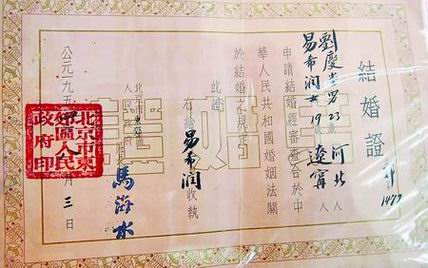 結婚證
1479
劉慶 男 23歲 河北人
易希润 女 19歲 遼寧人
申請結婚經審查合於中
華人民共和國婚姻法關
於結婚之規定
此證
右給易希润收執
北京市東郊區
人民政府
馬海水
公元一九五 月三日
北京市東郊區人民政府印